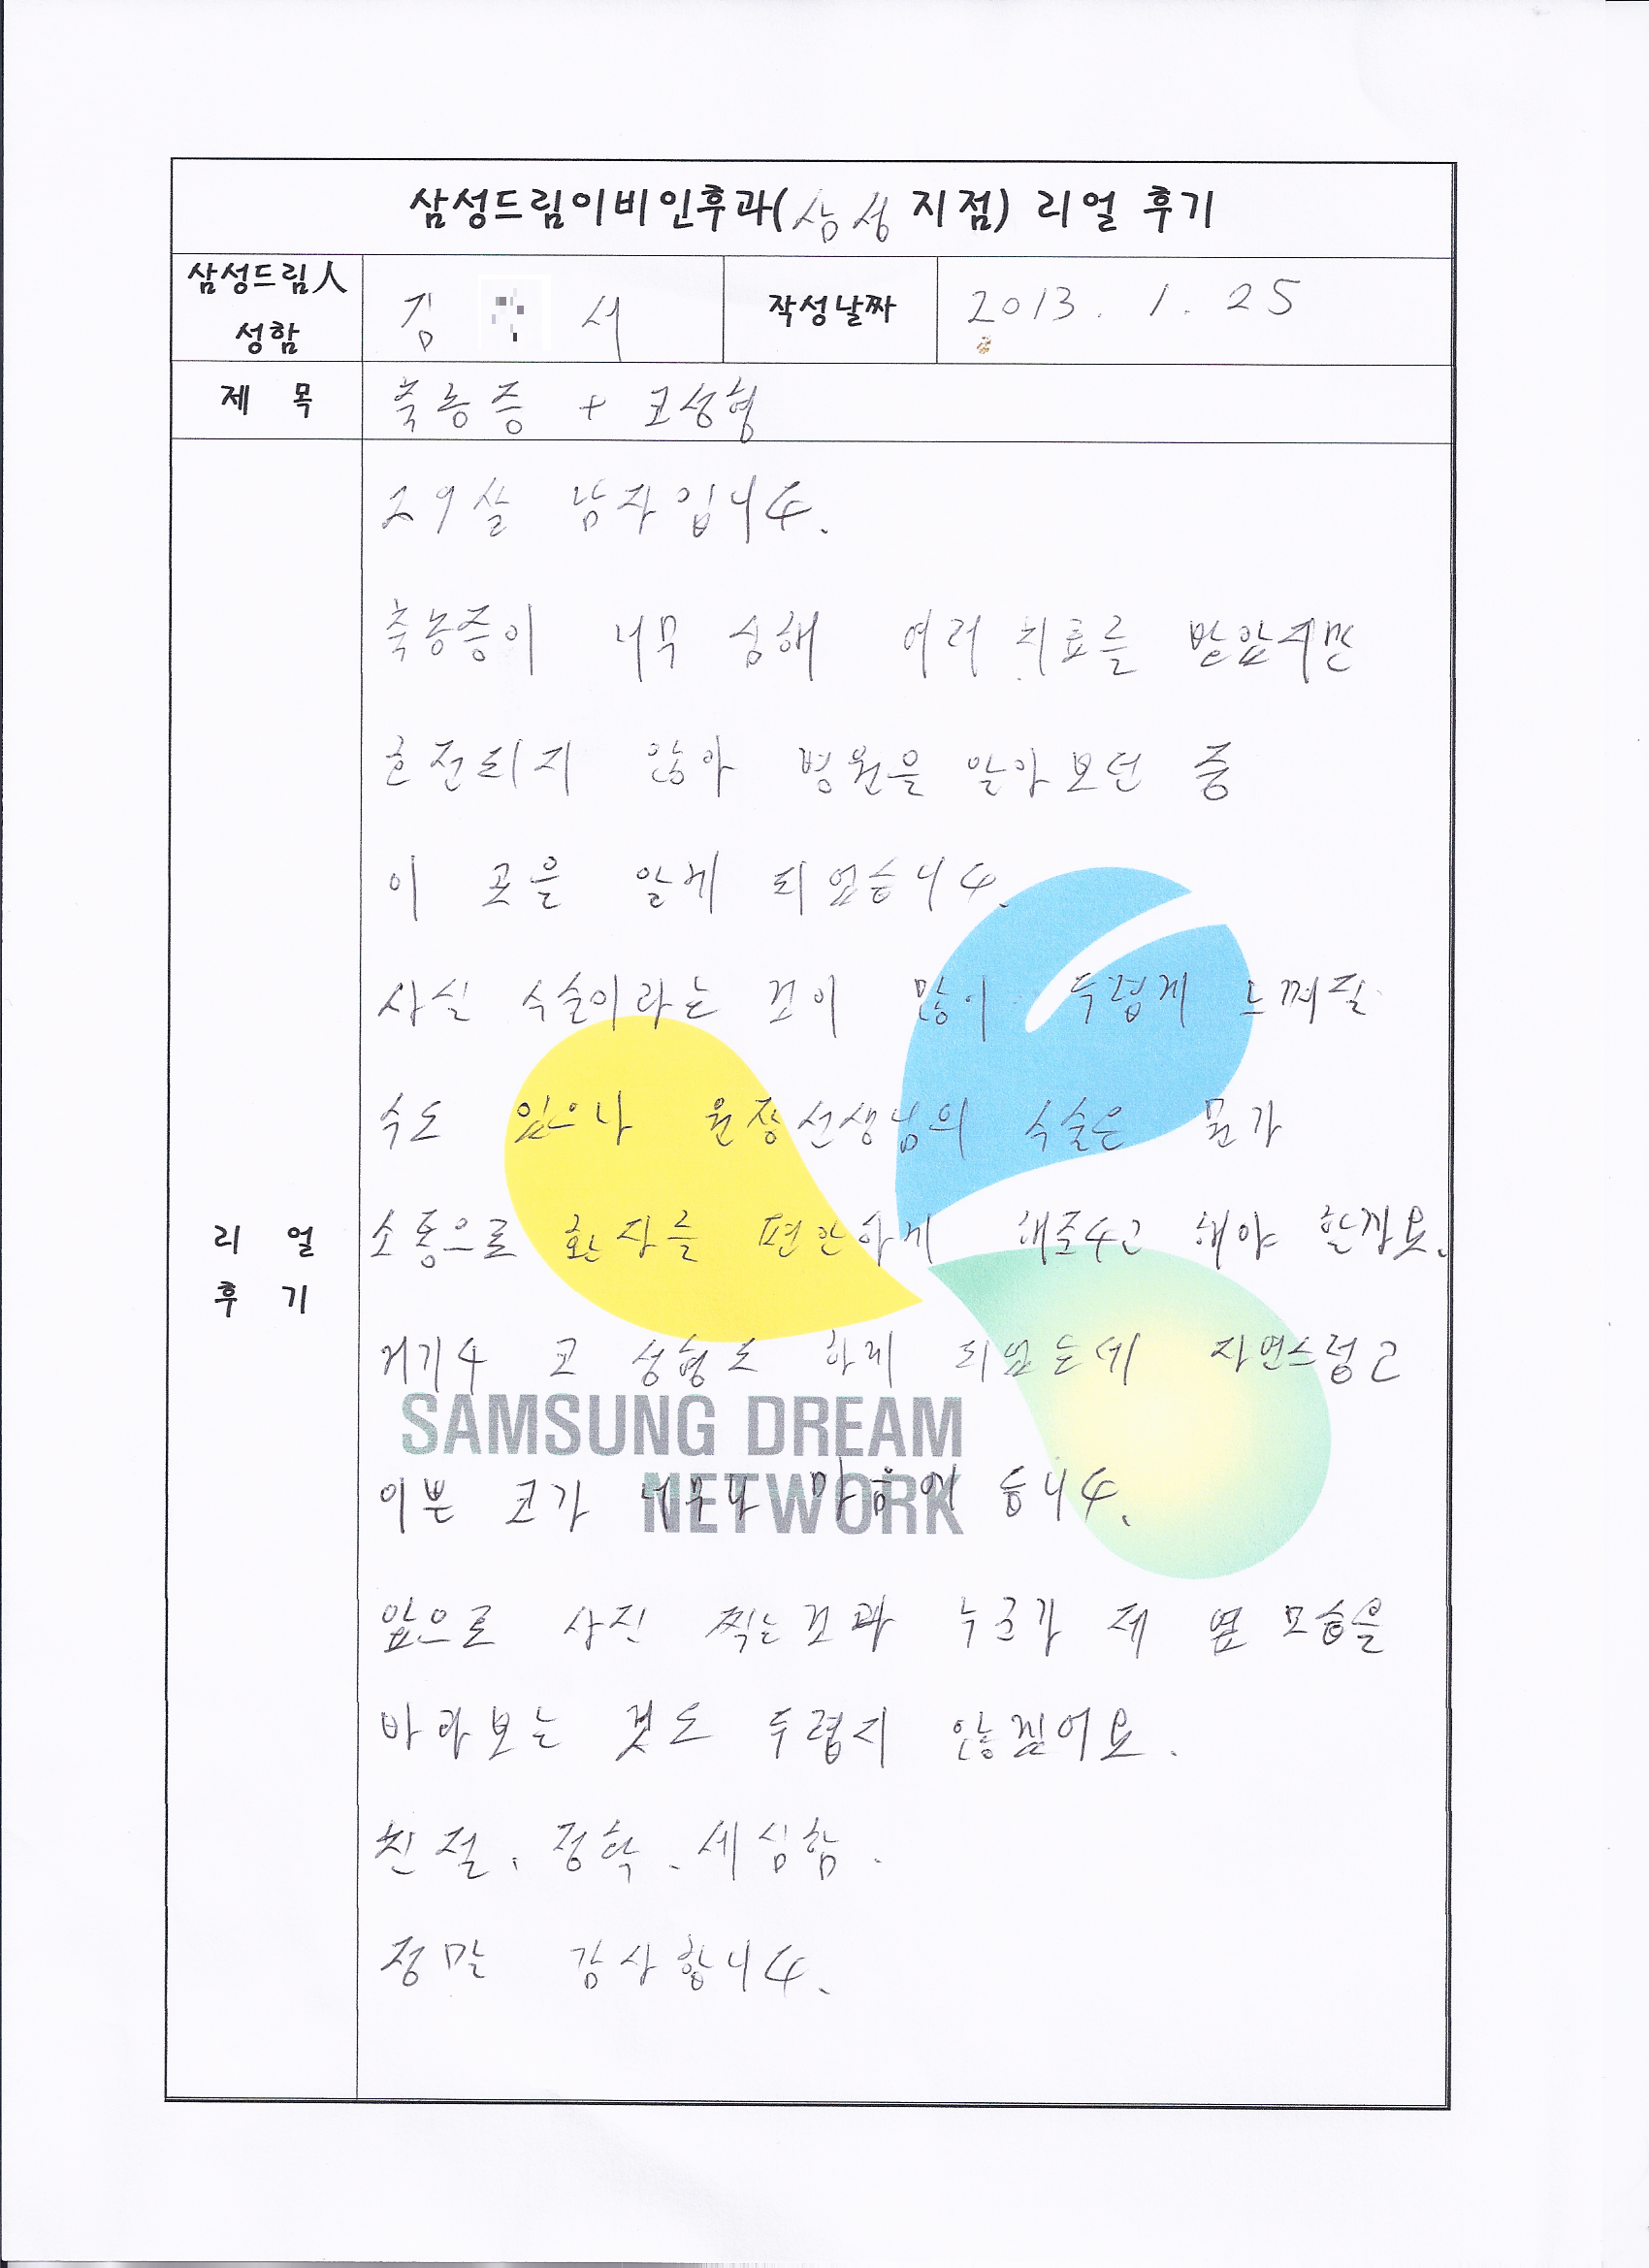 삼성드림이비인후과(삼성 지점) 리얼 후기
삼성드림人 성함
김 서
작성날짜
2013. 1. 25
제 목
축농증 + 코성형
리 얼 후 기
29살 남자입니다.
축농증이 너무 심해 여러 치료를 받았지만
호전되지 않아 병원을 알아보던 중
이 곳을 알게 되었습니다.
사실 수술이라는 것이 많이 두렵게 느껴질
수도 있으나 원장선생님의 수술은 뭔가
소통으로 환자를 편안하게 해준다고 해야 할까요.
거기다 코 성형도 하게 되었는데 자연스럽고
SAMSUNG DREAM
이쁜 코가 너무나 마음에 듭니다.
NETWORK
앞으로 사진 찍는것과 누군가 제 옆 모습을
바라보는 것도 두렵지 않겠어요.
친절, 정확, 세심함.
정말 감사합니다.